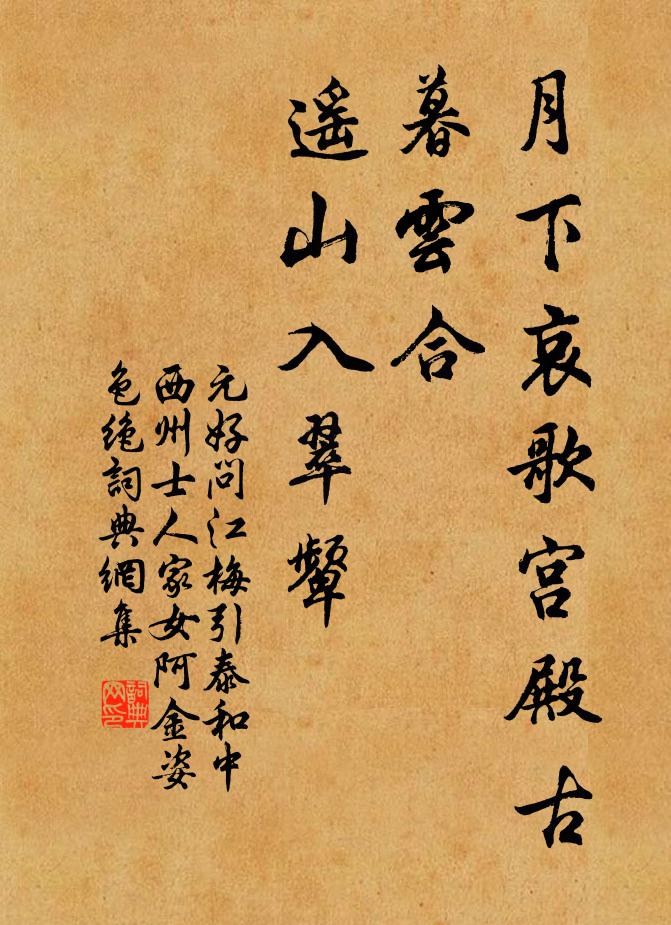 月下哀歌宮殿古
暮雲合
遥山入翠顰
元好問江梅引泰和中
西州士人家女阿金姿
色絶詞典網集
詞典網印